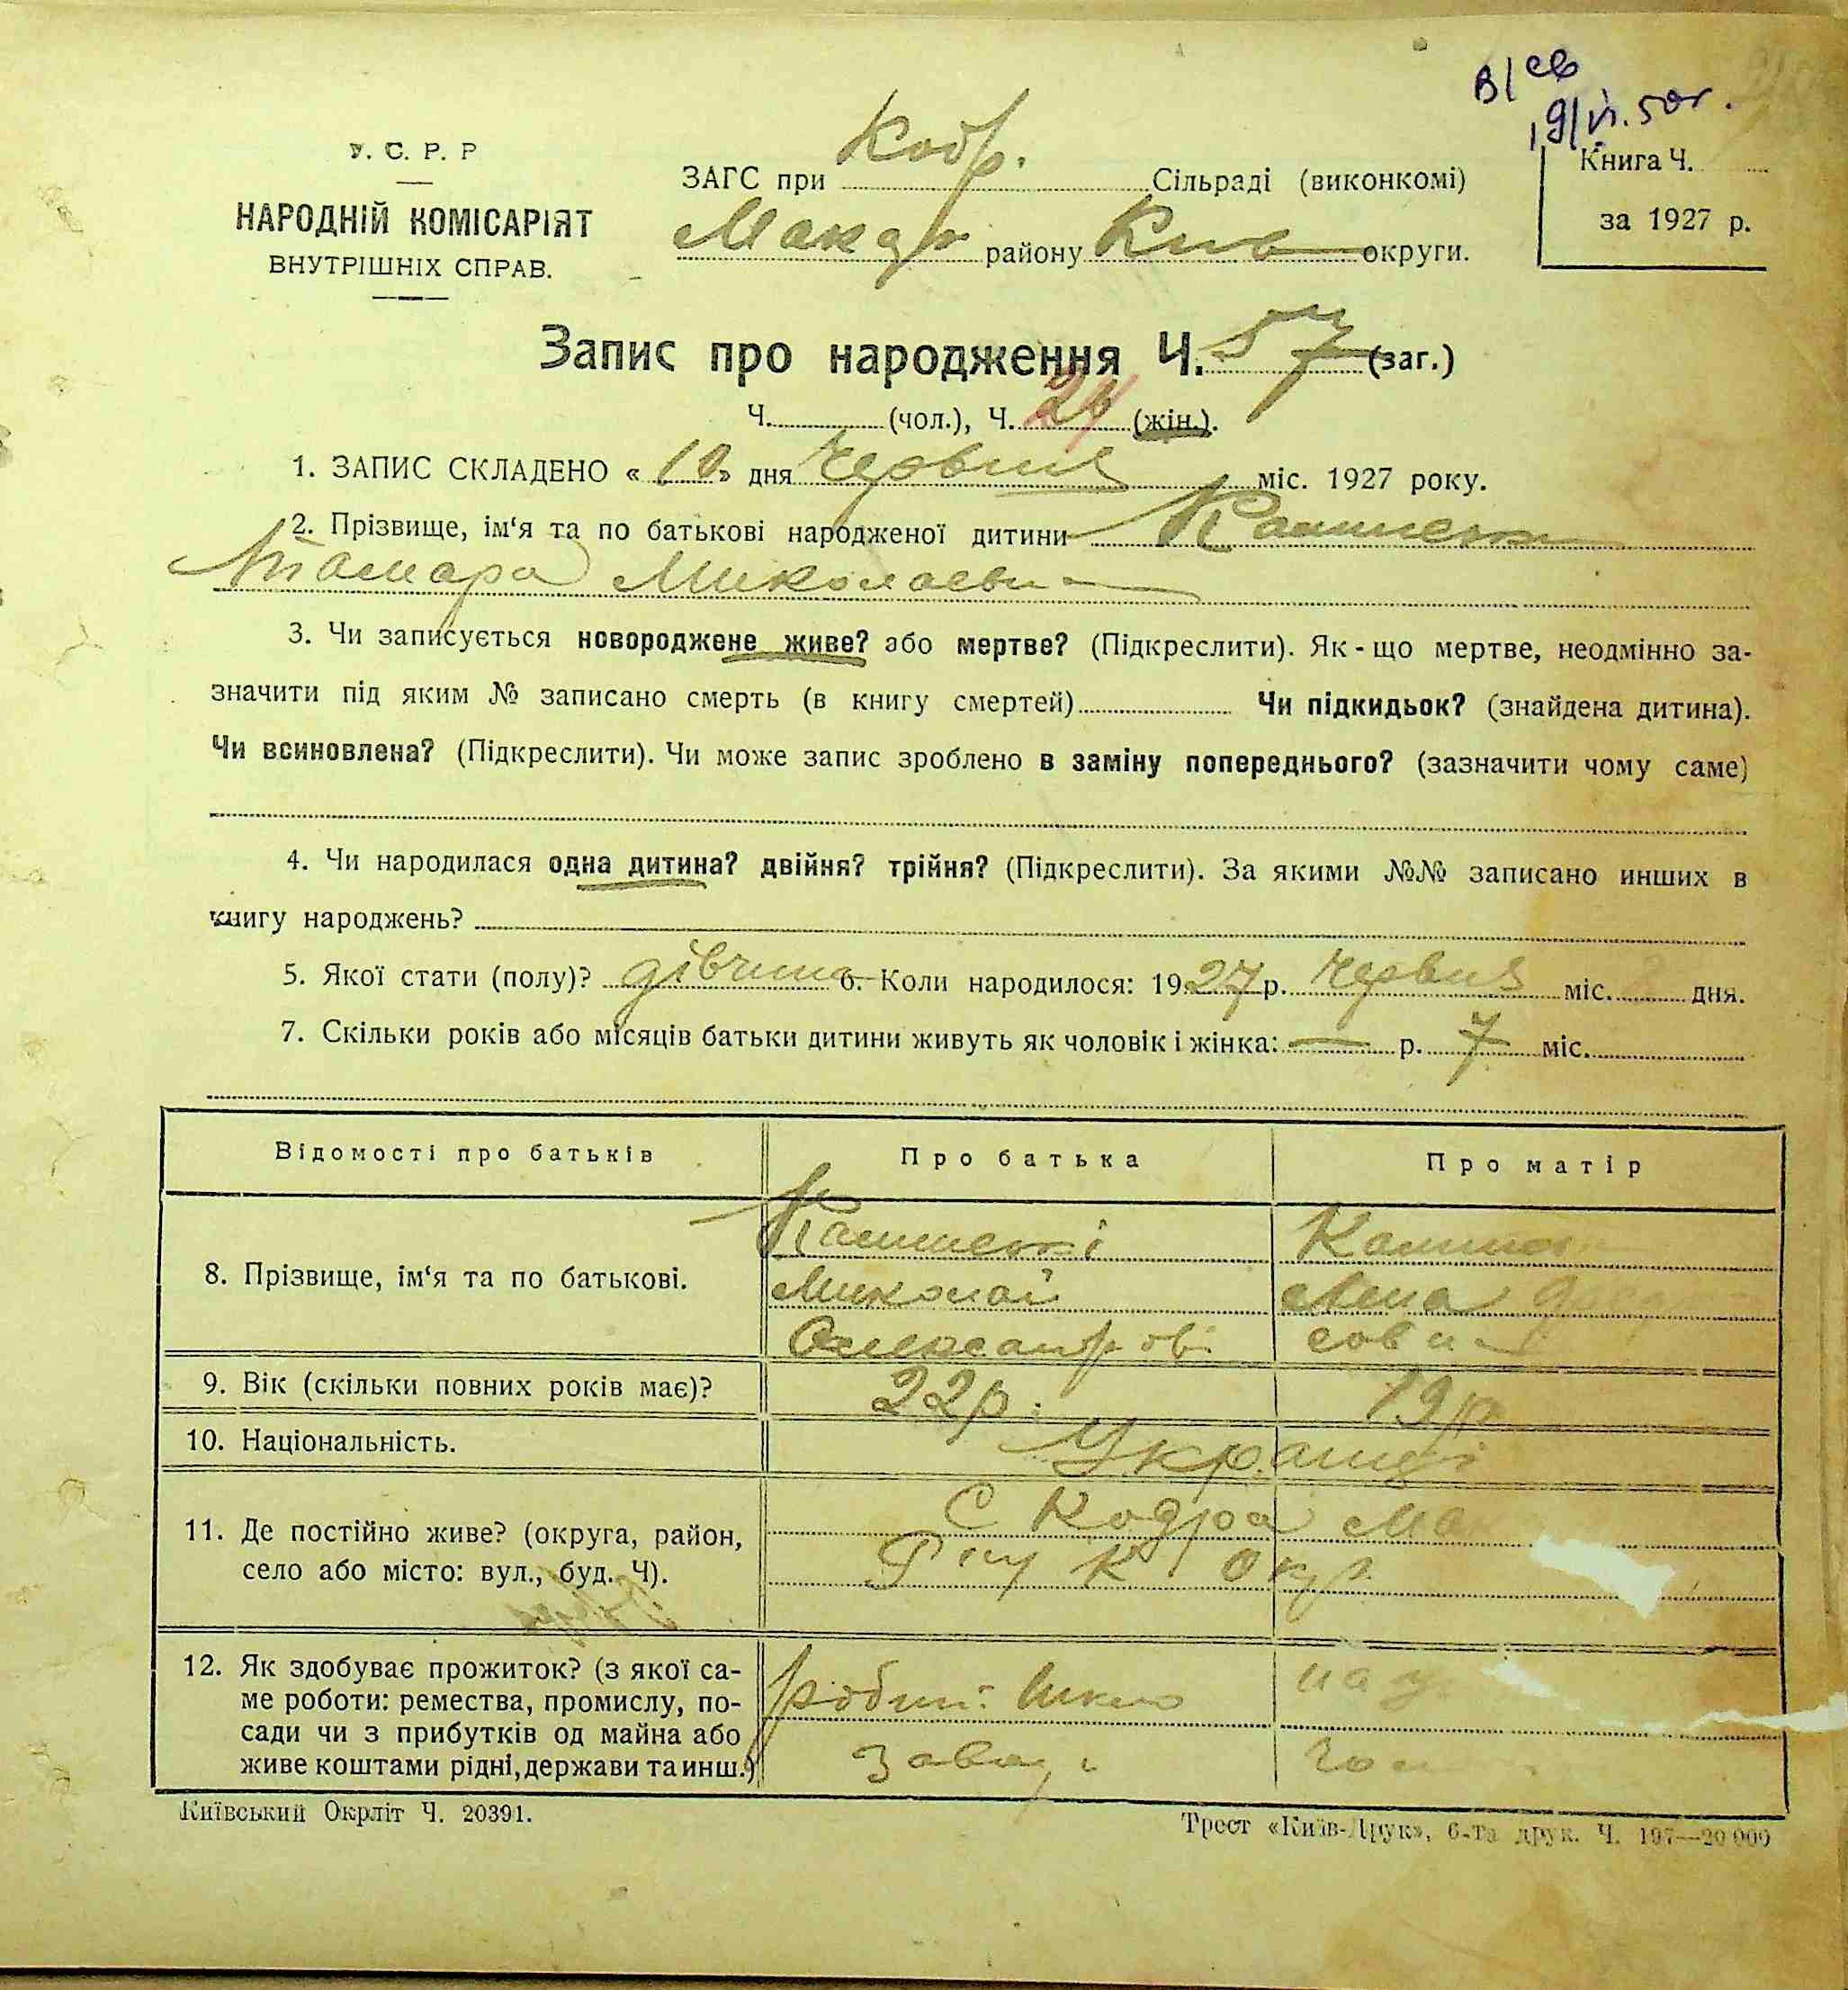 В/св
19/VI.50г.
У. С. Р. Р
НАРОДНІЙ КОМІСАРІЯТ
ВНУТРІШНІХ СПРАВ.
ЗАГС при Кодр. Сільраді (виконкомі)
Макар району Київ округи.
Книга Ч.
за 1927 р.
Запис про народження Ч. 57 (заг.)
Ч. (чол.), Ч. (жін.).
1. ЗАПИС СКЛАДЕНО « 10 » дня Червня міс. 1927 року.
2. Прізвище, ім‘я та по батькові народженої дитини
Тамара Миколаевн
3. Чи записується новороджене живе? або мертве? (Підкреслити). Як - що мертве, неодмінно за-
значити під яким № записано смерть (в книгу смертей) Чи підкидьок? (знайдена дитина).
Чи всиновлена? (Підкреслити). Чи може запис зроблено в заміну попереднього? (зазначити чому саме)
4. Чи народилася одна дитина? двійня? трійня? (Підкреслити). За якими №№ записано инших в
книгу народжень?
5. Якої стати (полу)? дівчина 6. Коли народилося: 1927 р. Червня міс. дня.
7. Скільки років або місяців батьки дитини живуть як чоловік і жінка: — р. 7 міс.
Відомості про батьків Про батька Про матір
8. Прізвище, ім‘я та по батькові.
Миколай
Олександрові
9. Вік (скільки повних років має)? 22р. 19р
10. Національність. Українці
11. Де постійно живе? (округа, район,
село або місто: вул., буд. Ч).
С Кодра Ма
К Окр.
12. Як здобуває прожиток? (з якої са-
ме роботи: ремества, промислу, по-
сади чи з прибутків од майна або
живе коштами рідні, держави та инш.)
робітн.
завод
Київський Окрліт Ч. 20391.
Трест «Київ-Друк», 6-та друк. Ч. 197—20 000